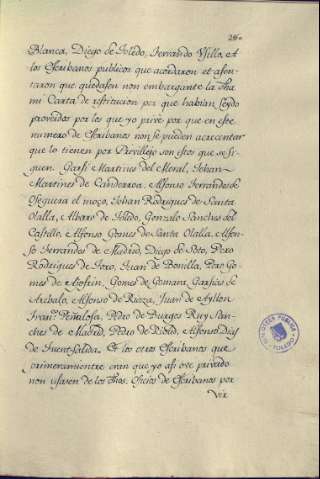 26.
Blanca, Diego de Toledo, Ferrando Ysillo, A
los Escribanos publicos que acordaron et asen-
taron que quedasen non embargante la dha
mi Carta de restitucion por que habian seydo
proveidos por los que yo privé por que en este
numero de Escribanos non se pueden acrecentar
que lo tienen por Previllejo son estos que se si-
guen. Garsi Martines del Moral, Johan
Martines de Alfonso Ferrandes de
Oseguera el moço, Johan Rodrigues de Santa
Olalla, Albaro de Toledo, Gonzalo Sanches del
Castillo, Alfonso Gomes de Santa Olalla, Alfon-
so Ferrandes de Madrid, Diego de Soto, Pero
Rodrigues de Toro, Juan de Bonilla, Pero Go-
mes de Ajofrin, Gomes de Gomara, Garsias de
Arebalo, Alfonso de Riaza, Juan de Ayllon
Ivan Peñalosa, Pedro de Burgos Ruy San-
ches de Madrid, Pedro de Alfonso Dias
de Fuent Salida. Et los otros Escribanos que
primeramientre eran que yo asi ove privado
non usasen de los dhos. Oficios de Escribanos por
Vir
BIBLIOTECA PUBLICA
TOLEDO